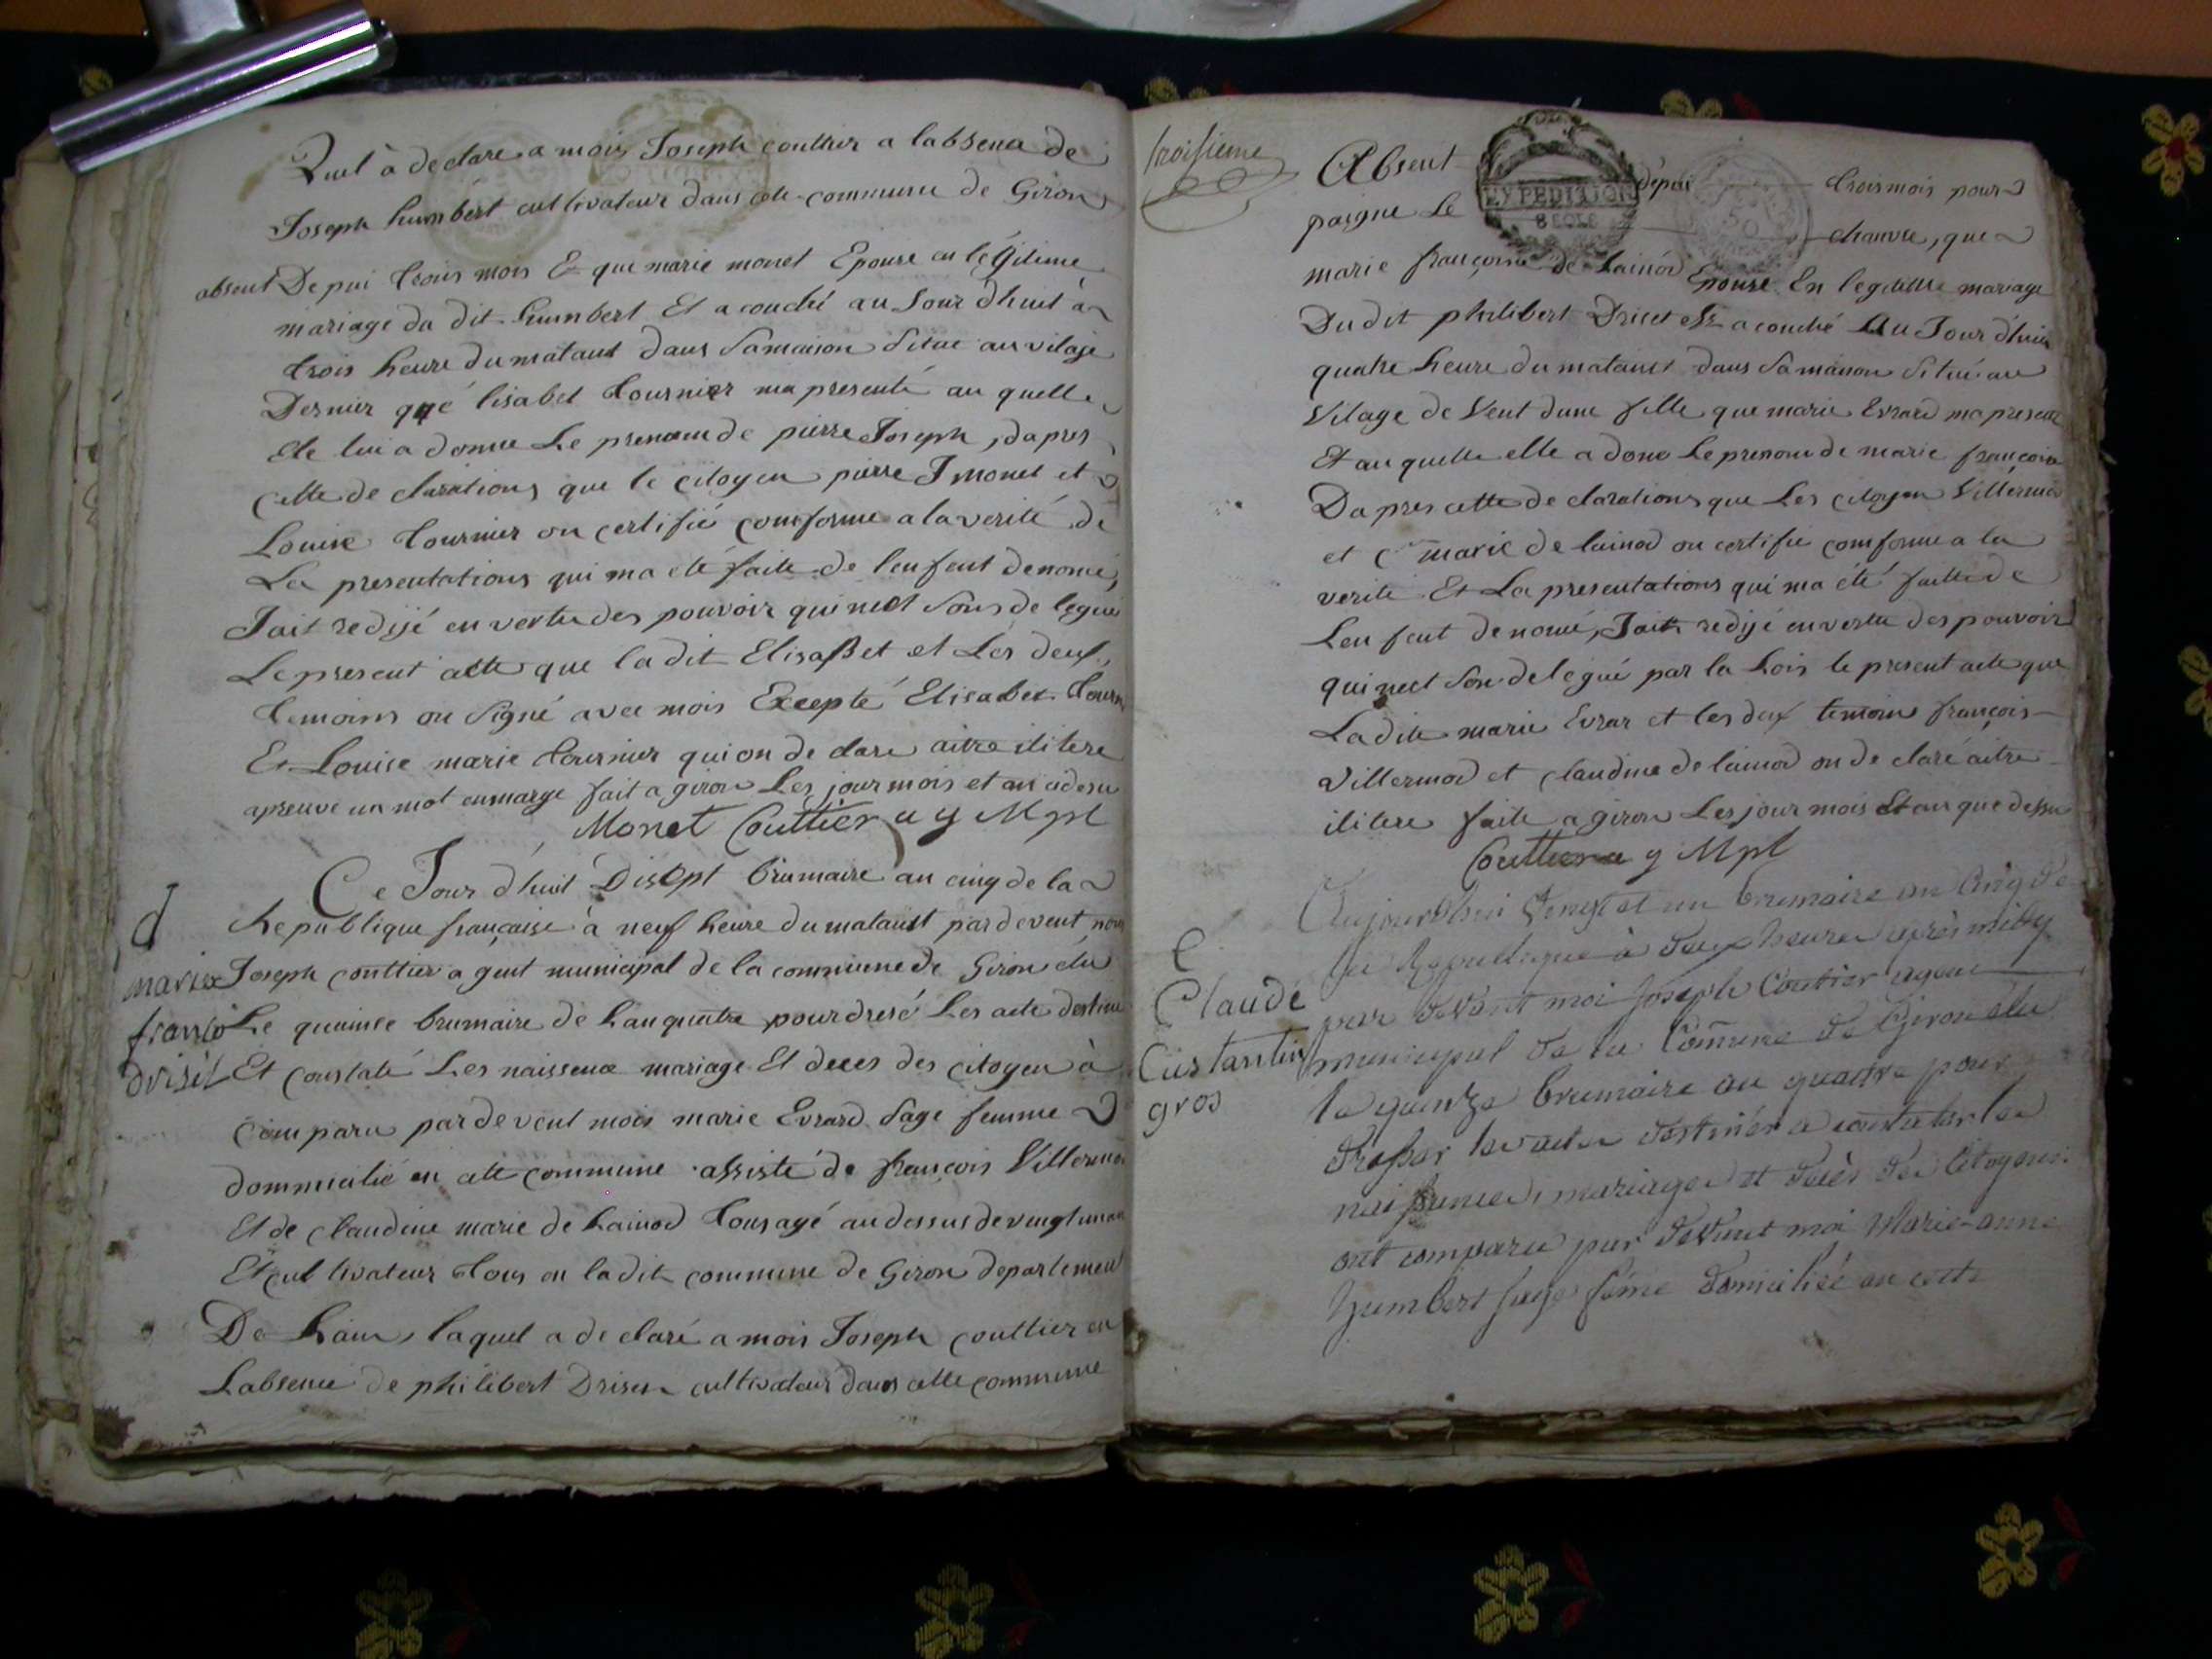 Quel à declare a mois Joseph couttier a labsena de
Joseph humbert cultivateur dans cete commune de Giron
absent Depui trois mois Et que marie monet Epouse en legitime
mariage du dit humbert Et a couché au Jour dhuit à
trois heure du mataint dans Samaison Situé au vilaje
Dernier qué lisabet tournier ma presenté au quelle
Ele lui a donné Le prenom de pierre Joseph, dapres
cette de clarations que le citoyen pierre J monet et
Louise tournier on certifié comforme a la verité de
La presentations qui ma eté faite de lenfent denomé,
Jait redijé en vertu des pouvoir qui nect Sons de legué
Le present acte que la dit Elisabet et Les deux
temoins on Signé avec mois Excepté Elisabet tourn
Et Louise marie tournier qui on de clare aitre ilitere
apreuve un mot enmarge fait a giron Les jour mois et an cidesu
Monet Couttier a g Mpl
Ce Jour d'huit Disept brumaire an cinq de la
Republique française à neuf heure du mataint pardevent nous
Joseph couttier agent municipal de la commune de Giron élu
Le quainse brumaire de Lanquatre pour dresé Les acte destiné
Et constaté Les naissence mariage Et deces des citoyen à
d
marie
franso
drisit
Comparu pardevent mois marie Evrard Sage femme
dommicilié en cete commune assisté de françois Villermo
Et de claudine marie de Lainod tous agé au dessus de vingt un an
Et cultivateur tous en ladit commune de Giron departement
De Lain, laquel a de claré a mois Joseph couttier en
Labsence de philibert Driset cultivateur dans cette commune
troisieme
Absent depui trois mois pour
paigné Le chanvre, que
marie françoise de Lainod Epouse En legitime mariage
Du dit philibert Driset Et a couché Au Jour dhuit
quatre heure du mataint dans Samaison Situé au
Vilage de Vent dune fille que marie Evrard ma presenté
Et au quelle elle a doné Le prenom de marie françoise
Dapres cette de clarations que Les citoyen Villermod
et marie de lainod on certifié comforme a la
verité Et La presentations qui ma été faitte de
Lenfent denomé, Jait redijé envertu des pouvoir
qui nect Son delegué par la Lois le present acte que
La dite marie Evrar et les deux temoins françois
Villermod et claudine de lainod on de claré aitre
ilitere faite a giron Les jour mois Et an que dessu
Couttier a g Mpl
Aujourdhui Vengt et un brumaire an Cinq de
la Republique à deux heures après midy
par devant moi Joseph Coutier agent
municipal de la Commune de Giron élu
le quinze brumaire an quatre pour
dresser les actes destinés a constater les
naissences, mariages et decès des Citoyens
ont comparu par devant moi Marie-anne
humbert sage féme domiciliée en cette
C
Claude
Custantin
gros